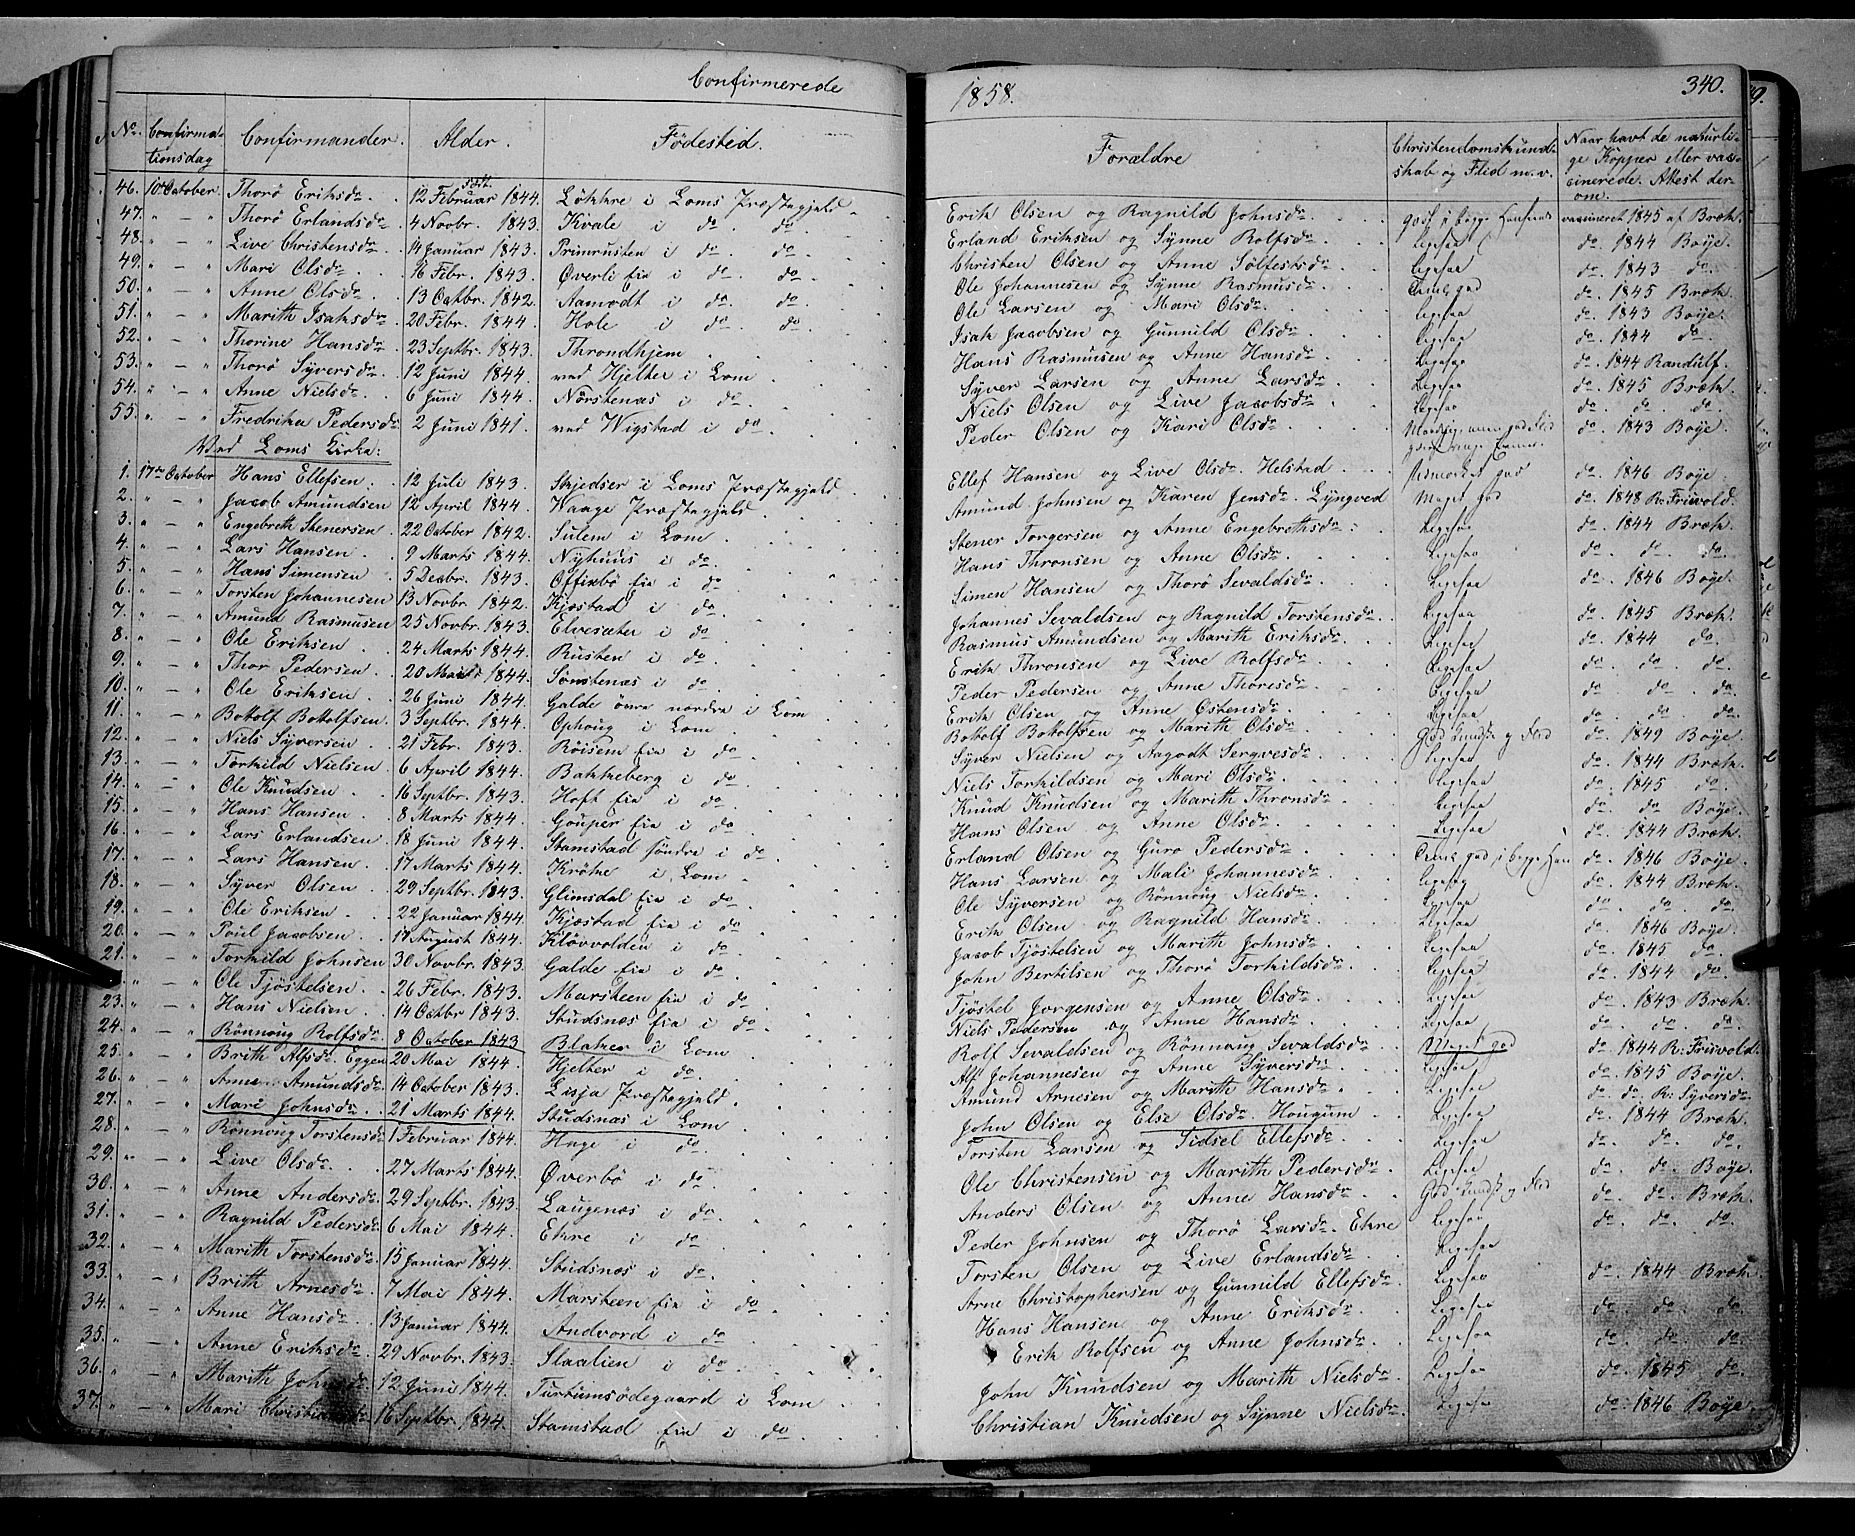 Confirmerede 1858. 340.
No. Confirmationsdag Confirmander. Alder. Fødested. Forældre Christendomskundskab og Flid m.v. Naar havt de naturlige Kopper eller vaccinerede. Attest derom.
46. 10de October Thorø Eriksdr. født 12 Februar 1844. Løkkre i Loms Præstegjeld. Erik Olsen og Ragnild Johnsdr. vaccineret 1845 af Bræk.
47. " — " Thorø Erlandsdr. 4 Novbr. 1843. Kvale i do. do. Erland Eriksen og Synne Rolfsdr. Ligesaa do. 1844 Boye.
48. " — " Live Christensdr. 14 Januar 1843. i do do Christen Olsen og Anne Sølfestsdr. Ligesaa do. 1843 do.
49. " — " Mari Olsdr. 16 Febr. 1843. Øverli eie i do do Ole Johannesen og Synne Rasmusdr. god do. 1845 Bræk.
50. " — " Anne Olsdr. 13 Octbr. 1842. Aamodt i do do Ole Larsen og Mari Olsdr. Ligesaa do. 1843 Boye.
51. " — " Marith Isaksdr. 20 Febr. 1844. Hole i do. do. Isak Jacobsen og Gunnild Olsdr. Ligesaa do. 1844 do.
52. " — " Thorine Hansdr. 23 Septbr. 1843. Throndhjem. Hans Rasmusen og Anne Hansdr. Ligesaa do. 1844 Randulf.
53. " — " Thorø Syversdr. 12 Juni 1844. ved Hjelter i Lom Syver Larsen og Anne Larsdr. Ligesaa do. 1845 Bræk.
54. " — " Anne Nielsdr. 6 Juni 1844. Nørstenæs i do. Niels Olsen og Live Jacobsdr. Ligesaa do. do. do.
55. " — " Fredrika Pedersdr. 2 Juni 1841. ved Wigstad i do. Peder Olsen og Kari Olsdr. do. 1843 Boye.
Ved Loms Kirke:
1. 17de October Hans Ellefsen. 12 Juli 1843. Skjedser i Loms Præstegjeld. Ellef Hansen og Live Olsdr. Helstad Udmærket god do. 1846 Boye.
2. " — " Jacob Amundsen 12 April 1844. Waage Præstegjeld. Amund Johnsen og Karen Jensdr. Lyngved Meget god do. 1848 R. Friisvold.
3. " — " Engebreth Stenersen 22 October 1842. Sulem i Lom. Stener Torgersen og Anne Engebrethsdr. Ligesaa do. 1844 Bræk.
4. " — " Lars Hansen. 9 Marts 1844. Nyhuus i do Hans Thronsen og Anne Olsdr. Ligesaa do. do. do.
5. " — " Hans Simensen 5 Decbr. 1843. Offixbø eie i do Simen Hansen og Thorø Sevaldsdr. Ligesaa do. 1846 Boye.
6. " — " Torsten Johannesen 13 Novbr. 1842. Kjæstad i do. Johannes Sevaldsen og Ragnild Torstensdr. Ligesaa do. 1845 Bræk.
7. " — " Amund Rasmusen 25 Novbr. 1843. Elvesæter i do. Rasmus Amundsen og Marith Eriksdr. Ligesaa do. 1844 do.
8. " — " Ole Eriksen. 24 Marts 1844. Rusten i do. Erik Thronsen og Live Rolfsdr. Ligesaa do. do. do.
9. " — " Thor Pedersen. 20 1844. Sønstenæs i do. Peder Pedersen og Anne Thoresdr. Ligesaa do. do. do.
10. " — " Ole Eriksen. 26 Juni 1844. Galde øvre nordre i Lom Erik Olsen og Anne Ostensdr. Ligesaa do. do. do.
11. " — " Bottolf Bottolfsen. 3 Septbr. 1844. Ophoug i Lom. Bottolf Bottolfsen og Marith Olsdr. God Kundsk. og Flid do. 1849 Boye.
12. " — " Niels Syversen. 21 Febr. 1843. Røisem eie i do Syver Nielsen og Aagodt Sergvesdr. Ligesaa do. 1844 Bræk.
13. " — " Torkild Nielsen 6 April 1844. Bakkeberg i do. Niels Torkildsen og Mari Olsdr. Ligesaa do. 1845 do.
14. " — " Ole Knudsen 16 Septbr. 1843. Hoft eie i do Knud Knudsen og Marith Thronsdr. Ligesaa do. do Boye.
15. " — " Hans Hansen. 8 Marts 1844. Gouper eie i do Hans Olsen og Anne Olsdr. Ligesaa do. 1844 Bræk.
16. " — " Lars Erlandsen 18 Juni 1844. Stamstad søndre i do. Erland Olsen og Guro Pedersdr. do. 1846 Boye.
17. " — " Lars Hansen. 17 Marts 1844. Krøke i Lom. Hans Larsen og Mali Johannesdr. Ligesaa do. 1844 Bræk.
18. " — " Syver Olsen. 29 Septbr. 1843. Glimsdal eie i do. Ole Syversen og Rønnoug Nielsdr. Ligesaa do. do. do.
19. " — " Ole Eriksen. 22 Januar 1844. Kjæstad eie i do Erik Olsen og Ragnild Hansdr. Ligesaa do. 1846 Boye.
20. " — " Poul Jacobsen. 17 August 1844. Kløvvolden i do Jacob Tjøstelsen og Marith Johnsdr. Ligesaa do. 1845 do.
21. " — " Torkild Johnsen 30 Novbr. 1843. Galde eie i do. John Bertilsen og Thorø Torkildsdr. Ligesaa do. 1844 do.
" — " Ole Tjøstelsen. 26 Febr. 1843. Marsteen eie i do Tjøstel Jorgensen og Anne Olsdr. Ligesaa do. 1843 Bræk.
23. " — " Hans Nielsen. 14 Octbr 1843. Studsnæs eie i do. Niels Pedersen og Anne Hansdr. Ligesaa do. do. do.
24. " — " Rønnoug Rolfsdr. 8 October 1843 Blakar i Lom Rolf Sevaldsen og Rønnoug Sevaldsdr. Meget god do. 1844 R. Friisvold.
25. " — " Brith Alfsdr. Eggen 20 Mai 1844. Hjelter i do. Alf Johannesen og Anne Syversdr. Ligesaa do. 1845 Boye.
26. " — " Anne Amundsdr. 14 October 1843. Lesja Præstegjeld. Amund Arnesen og Marith Hansdr. Ligesaa do. do. R. Syversdr.
27. " — " Mari Johnsdr. 21 Marts 1844. Studsnæs i Lom John Olsen og Else Olsdr. Hougum Ligesaa do. 1844 Bræk.
28. " — " Rønnoug Torstensdr. 1 Februar 1844. Hage i do. Torsten Larsen og Sidsel Ellefsdr. Ligesaa do. do. do.
29. " — " Live Olsdr. 27 Marts 1844. Øverbø i do. Ole Christensen og Marith Pedersdr. Ligesaa do. do. Boye.
30. " — " Anne Andersdr. 29 Septbr. 1843. Laugenæs i do. Anders Olsen og Anne Hansdr. God Kundsk. og Flid do. do. Bræk.
31. " — " Ragnild Pedersdr. 6 Mai 1844. Ekre i do. Peder Johnsen og Thorø Larsdr. Ekre Ligesaa do. do. do.
32. " — " Marith Torstensdr. 15 Januar 1844. Studsnæs i do. Torsten Olsen og Live Erlandsdr. Ligesaa
33. " — " Brith Arnesdr. 7 Mai 1844. Marsteen eie i do Arne Christophersen og Gunnild Ellefsdr. Ligesaa do. 1844 Bræk.
34. " — " Anne Hansdr. 13 Januar 1844. Andvord i do Hans Hansen og Anne Eriksdr. Ligesaa do. do. do.
35. " — " Anne Eriksdr. 29 Novbr. 1843. Slaalien i do. Erik Rolfsen og Anne Johnsdr. Ligesaa do. do. do.
36. " — " Marith Johnsdr. 12 Juni 1844. Turtumsødegaard i Lom. John Knudsen og Marith Nielsdr. Ligesaa do. 1845 do.
37. " — " Mari Christiansdr. 16 Septbr. 1844. Stamstad eie i do. Christian Knudsen og Synne Nielsdr. Ligesaa do. 1846 Boye.